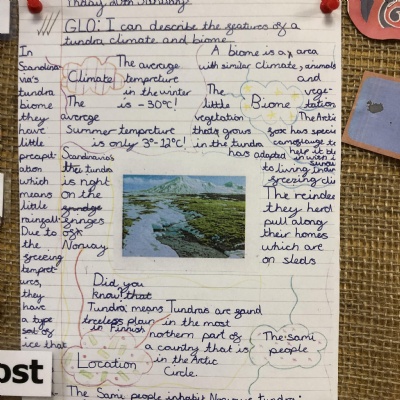 GLO: I can describe the features of a
tundra climate and biome
In
Scandinavia's
tundra
biome
they
have
little
precipitation
which
means
little
rainfall.
Due to
the
freezing
temperatures,
they
have
a type
soil of
ice that
Climate
The average
temperature
in the winter
is -30°C!
The
average
Summer temperture
is only 3°-12°C!
A biome is a area
with similar climate, animals
and
vegetation
Biome
The
little
vegetation
that's grows
in the tundra
has adapted
to living in
freezing
The Arctic
fox has
camouflauge
help it
in
Scandinavia's
the tundra
is right
on the
fringes
Norway
The reindeer
they herd
pull along
their homes
which are
on sleds
Did you
know? that
Tundra means
treeless plain
in Finnish
Tundras are found
in the most
northern part of
a country that is
in the Artic
Circle.
Location
The sami
people
The Same people inhabit Norway's tundra
ost